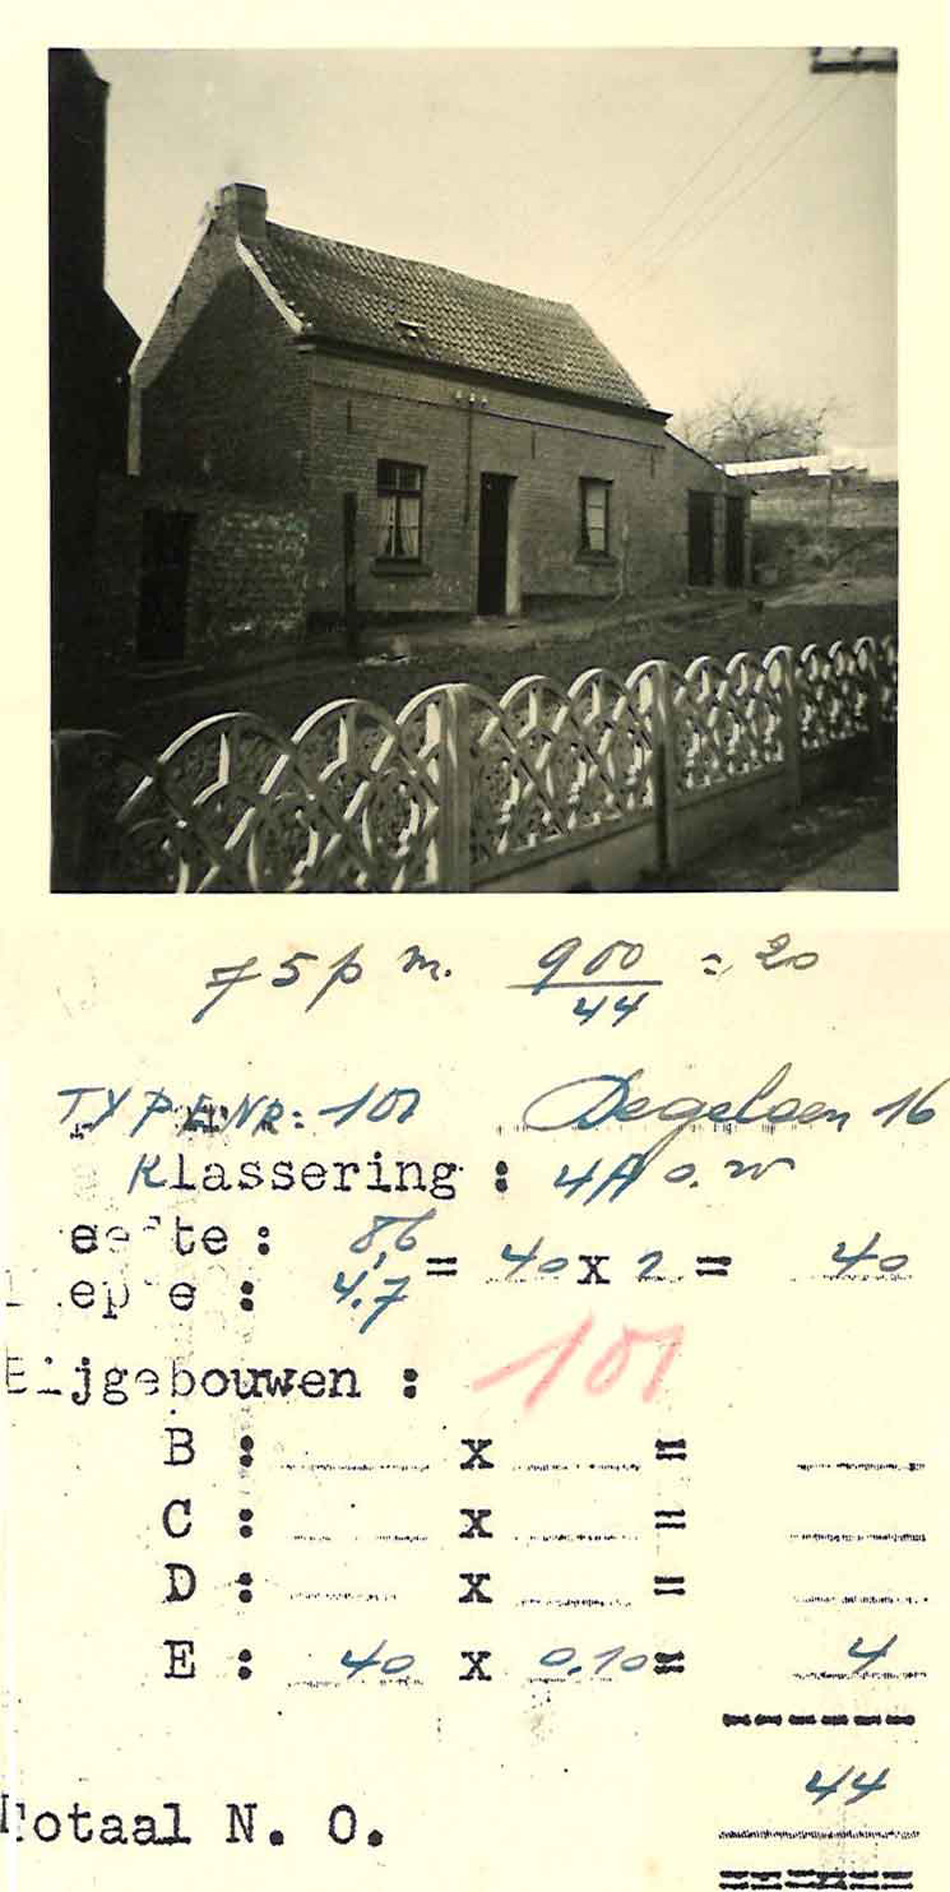 75 p m. 900/44 = 20
TYPE NR: 101 Degeloen 16
Klassering : 4A o.w
eedte : 8,6
= 40 x 1 = 40
epte : 4.7
Bijgebouwen : 101
B : x =
C : x =
D : x =
E : 40 x 0.10 = 4
44
Totaal N. O.